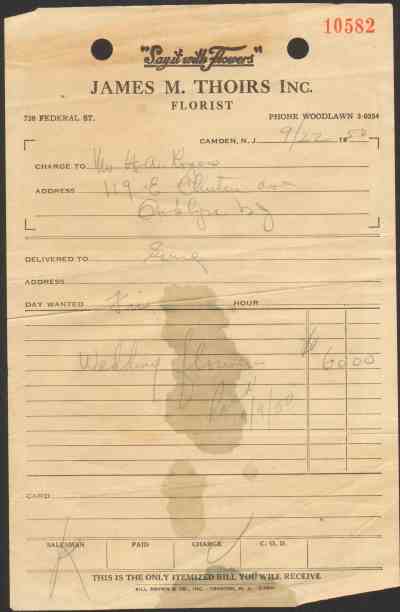 10582
"Say it with Flowers"
JAMES M. THOIRS INC.
FLORIST
728 FEDERAL ST. PHONE WOODLAWN 3-0354
CAMDEN, N. J. 9/22 1950
CHARGE TO Mr H. A. Rogers
ADDRESS 119 E Clinton Ave
Oaklyn NJ
DELIVERED TO Same
ADDRESS
DAY WANTED HOUR
Wedding flowers $ 60 00
CARD
SALESMAN PAID CHARGE C. O. D.
THIS IS THE ONLY ITEMIZED BILL YOU WILL RECEIVE